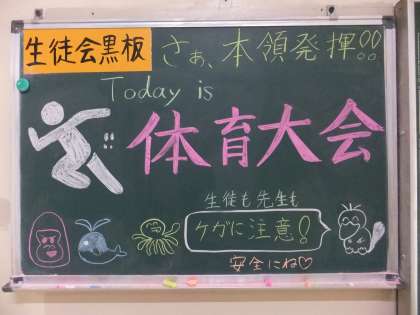 生徒会黒板
さぁ、本領発揮!!
Today is
体育大会
生徒も先生も
ケガに注意!
安全にね♡